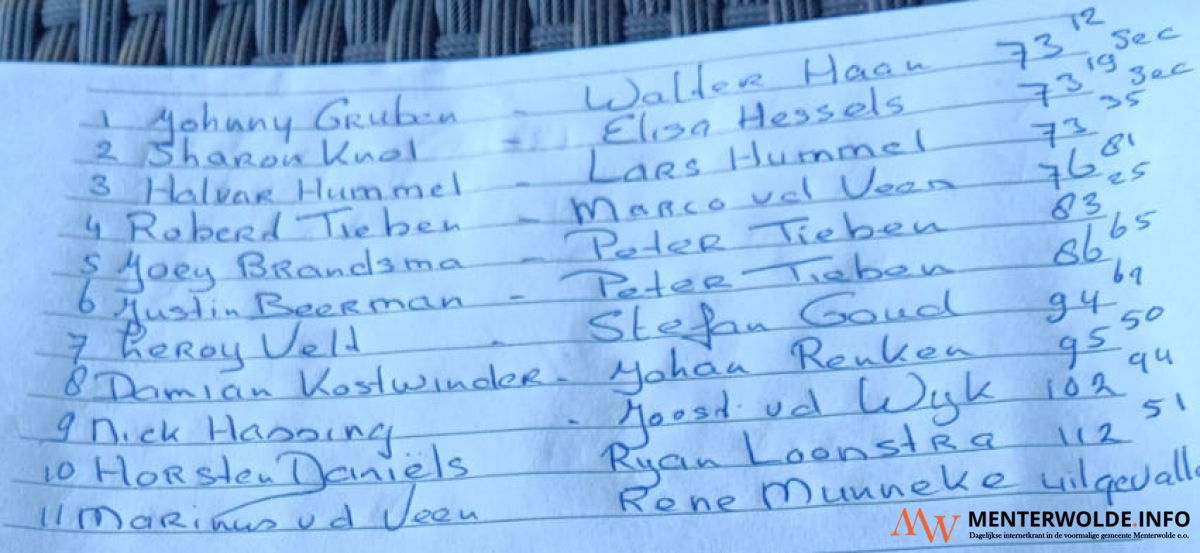 1 Johnny Gruben - Walter Haan 73 12 sec
2 Sharon Knol = Elisa Hessels 73 19 sec
3 Halvar Hummel - Lars Hummel 73 35
4 Roberd Tieben - Marco vd Veen 76 81
5 Joey Brandsma - Peter Tieben 83 25
6 Justin Beerman - Peter Tieben 86 65
7 Leroy Veld - Stefan Goud 94 69
8 Damian Kostwinder - Johan Renken 95 50
9 Nick Hassing - Joost vd Wyk 102 94
10 Horsten Daniëls Ryan Loonstra 112 51
11 Marinus vd Veen Rene Munneke uitgevalle
MW MENTERWOLDE.INFO
Dagelijkse internetkrant in de voormalige gemeente Menterwolde e.o.